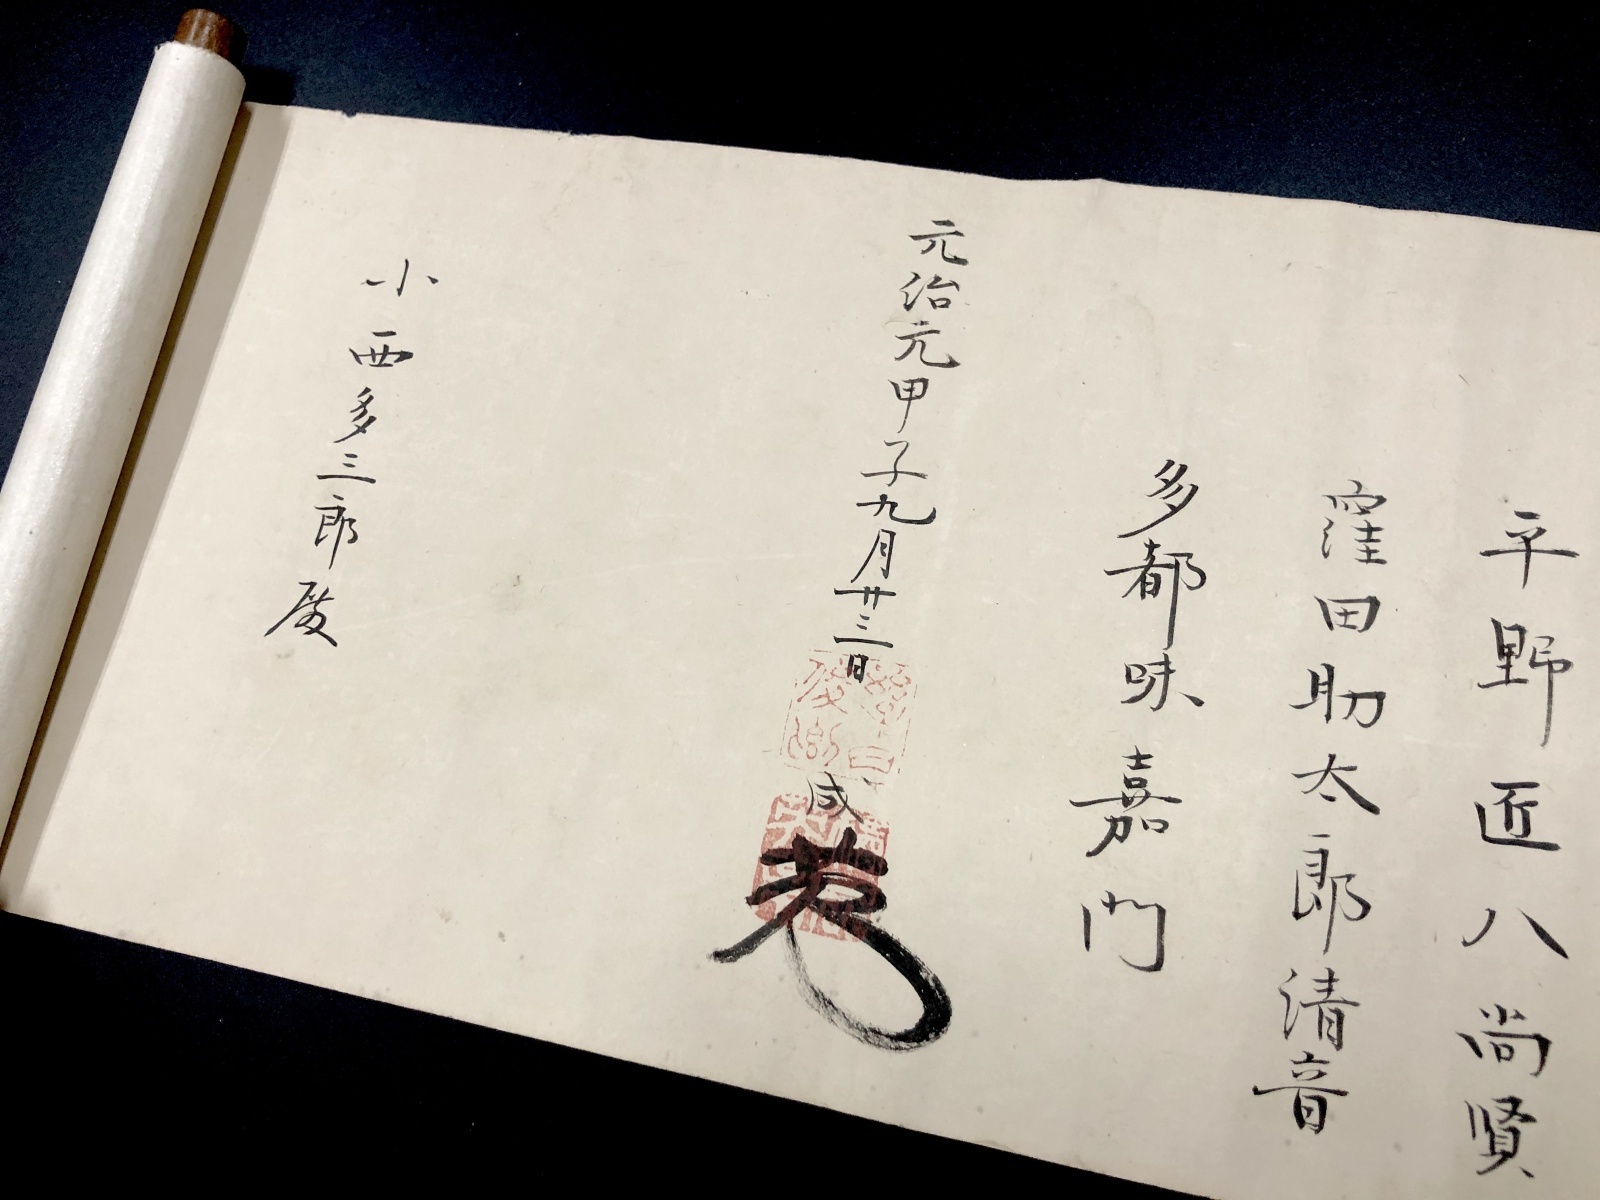 平野匠八尚賢
窪田助太郎清音
多都味嘉門
元治元甲子九月廿三日
成
小西多三郎殿